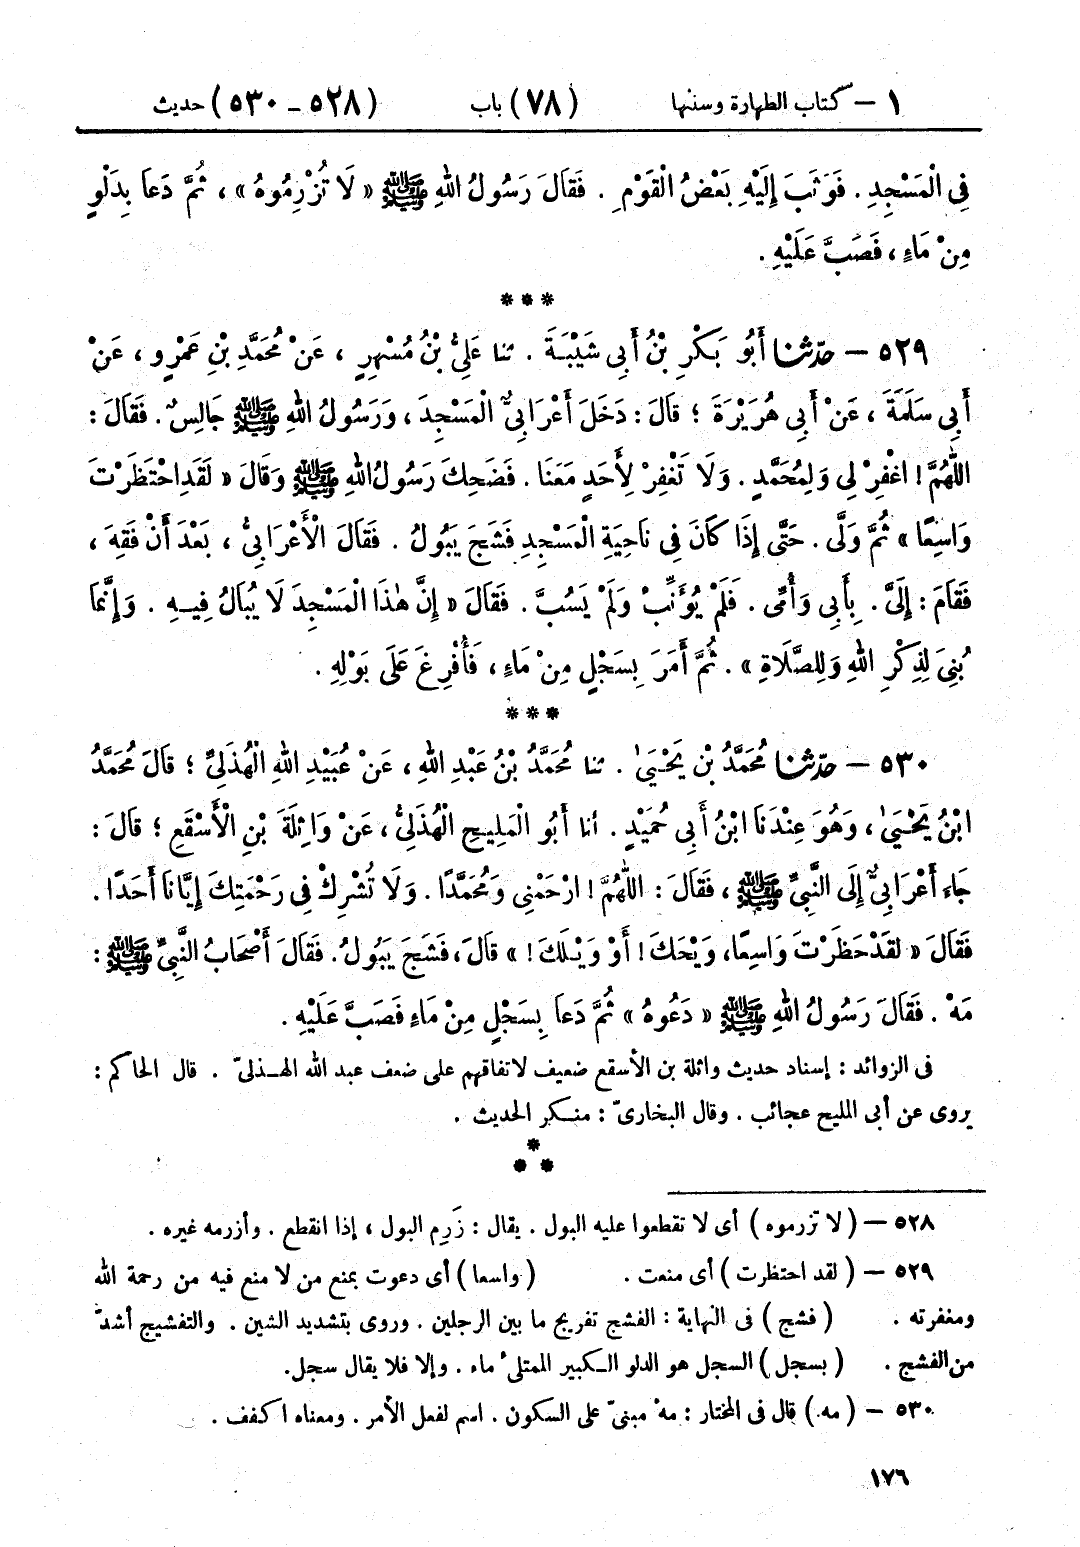 ١ – كتاب الطهارة وسننها (٧٨) باب (٥٢٨ – ٥٣٠) حديث
فِى الْمَسْجِدِ . فَوَثَبَ إِلَيْهِ بَعْضُ الْقَوْمِ . فَقَالَ رَسُولُ اللهِ ﷺ « لَا تُزْرِمُوهُ » ، ثُمَّ دَعَا بِدَلْوٍ
مِنْ مَاءٍ ، فَصَبَّ عَلَيْهِ .
***
٥٢٩ – حدّثنا أَبُو بَكْرِ بْنُ أَبِى شَيْبَةَ . ثنا عَلِىُّ بْنُ مُسْهِرٍ ، عَنْ مُحَمَّدِ بْنِ عَمْرٍو ، عَنْ
أَبِى سَلَمَةَ ، عَنْ أَبِى هُرَيْرَةَ ؛ قَالَ : دَخَلَ أَعْرَابِىٌّ الْمَسْجِدَ ، وَرَسُولُ اللهِ ﷺ جَالِسٌ . فَقَالَ :
اللّٰهُمَّ ! اغْفِرْ لِى وَلِمُحَمَّدٍ . وَلَا تَغْفِرْ لِأَحَدٍ مَعَنَا . فَضَحِكَ رَسُولُ اللهِ ﷺ وَقَالَ « لَقَدِ احْتَظَرْتَ
وَاسِعًا » ثُمَّ وَلَّى . حَتَّى إِذَا كَانَ فِى نَاحِيَةِ الْمَسْجِدِ فَشَجَ يَبُولُ . فَقَالَ الْأَعْرَابِىُّ ، بَعْدَ أَنْ فَقِهَ ،
فَقَامَ : إِلَىَّ . بِأَبِى وَأُمِّى . فَلَمْ يُؤَنِّبْ وَلَمْ يَسُبَّ . فَقَالَ « إِنَّ هٰذَا الْمَسْجِدَ لَا يُبَالُ فِيهِ . وَإِنَّمَا
بُنِىَ لِذِكْرِ اللهِ وَلِلصَّلَاةِ » . ثُمَّ أَمَرَ بِسَجْلٍ مِنْ مَاءٍ ، فَأُفْرِغَ عَلَى بَوْلِهِ .
***
٥٣٠ – حدّثنا مُحَمَّدُ بْن يَحْيَىٰ . ثنا مُحَمَّدُ بْنُ عَبْدِ اللهِ ، عَنْ عُبَيْدِ اللهِ الْهُذَلِىِّ ؛ قَالَ مُحَمَّدُ
ابْنُ يَحْيَىٰ ، وَهُوَ عِنْدَنَا ابْنُ أَبِى حُمَيْدٍ . أنا أَبُو الْمَلِيحِ الْهُذَلِىُّ ، عَنْ وَاثِلَةَ بْنِ الْأَسْقَعِ ؛ قَالَ :
جَاءَ أَعْرَابِىٌّ إِلَى النَّبِىِّ ﷺ ، فَقَالَ : اللّٰهُمَّ ! ارْحَمْنِى وَمُحَمَّدًا . وَلَا تُشْرِكْ فِى رَحْمَتِكَ إِيَّانَا أَحَدًا .
فَقَالَ « لَقَدْ حَظَرْتَ وَاسِعًا، وَيْحَكَ ! أَوْ وَيْلَكَ ! » قَالَ، فَشَجَ يَبُولُ. فَقَالَ أَصْحَابُ النَّبِىِّ ﷺ :
مَهْ . فَقَالَ رَسُولُ اللهِ ﷺ « دَعُوهُ » ثُمَّ دَعَا بِسَجْلٍ مِنْ مَاءٍ فَصَبَّ عَلَيْهِ .
فى الزوائد : إسناد حديث واثلة بن الأسقع ضعيف لاتفاقهم على ضعف عبد الله الهذلىّ . قال الحاكم :
يروى عن أبى المليح عجائب . وقال البخارىّ : منكر الحديث .
*
* *
٥٢٨ – ( لا تزرموه ) أى لا تقطعوا عليه البول . يقال : زَرِم البول ، إذا انقطع . وأزرمه غيره .
٥٢٩ – ( لقد احتظرت ) أى منعت . ( واسعا ) أى دعوت بمنع من لا منع فيه من رحمة الله
ومغفرته . ( فشج ) فى النهاية : الفشج تفريج ما بين الرجلين . وروى بتشديد الشين . والتفشيج أشدّ
من الفشج . ( بسجل ) السجل هو الدلو الكبير الممتلئ ماء . وإلا فلا يقال سجل.
٥٣٠ – ( مه ) قال فى المختار : مهْ مبنىّ على السكون . اسم لفعل الأمر . ومعناه اكفف .
١٧٦